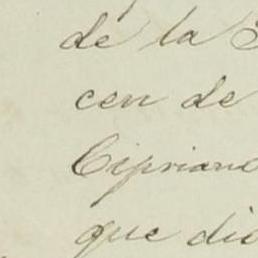 de la
cen de
Cipriano
que dio